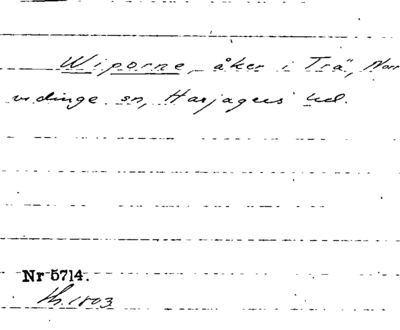 Wiporne, åker i Trä", Norr
vidinge sn, Harjagers hd.
Nr 5714.
1803